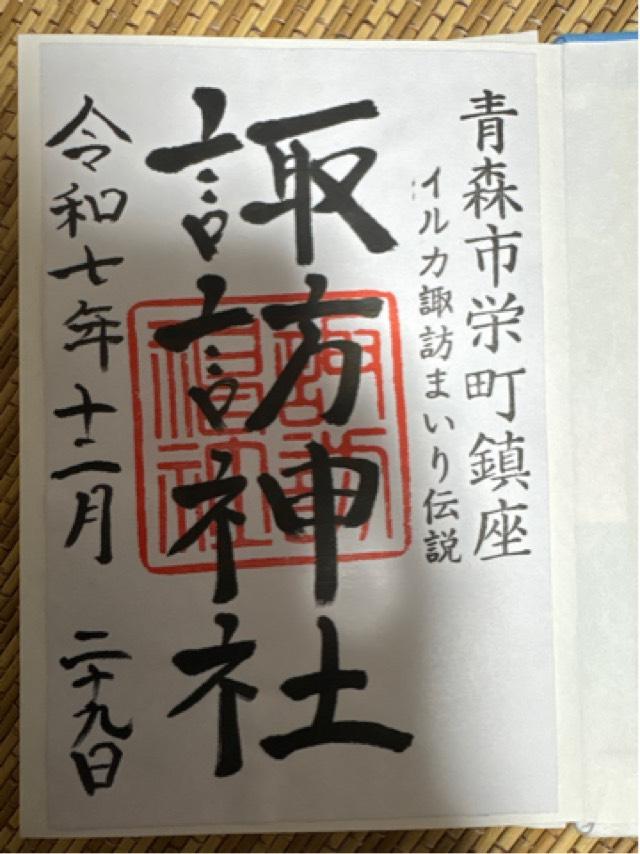 青森市栄町鎮座
イルカ諏訪まいり伝説
諏訪神社
令和七年十二月 二十九日